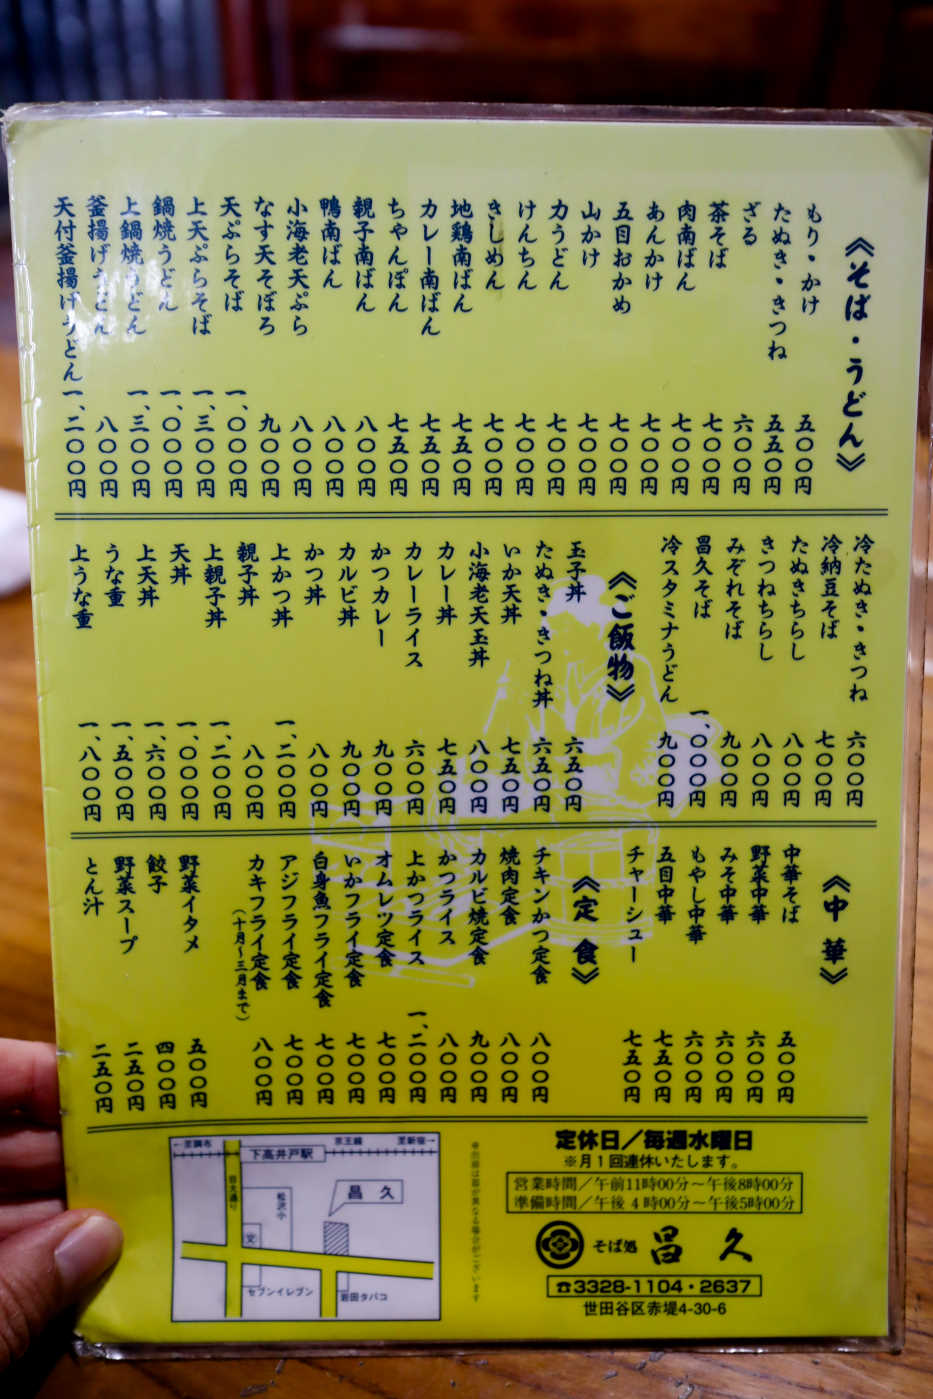 《そば・うどん》
もり・かけ 五〇〇円
たぬき・きつね 五五〇円
ざる 六〇〇円
茶そば 七〇〇円
肉南ばん 七〇〇円
あんかけ 七〇〇円
五目おかめ 七〇〇円
山かけ 七〇〇円
力うどん 七〇〇円
けんちん 七〇〇円
きしめん 七〇〇円
地鶏南ばん 七五〇円
カレー南ばん 七五〇円
ちゃんぽん 七五〇円
親子南ばん 八〇〇円
鴨南ばん 八〇〇円
小海老天ぷら 八〇〇円
なす天そぼろ 九〇〇円
天ぷらそば 一、〇〇〇円
上天ぷらそば 一、三〇〇円
鍋焼うどん 一、〇〇〇円
上鍋焼うどん 一、三〇〇円
釜揚げうどん 八〇〇円
天付釜揚げうどん 一、二〇〇円
冷たぬき・きつね 六〇〇円
冷納豆そば 七〇〇円
たぬきちらし 八〇〇円
きつねちらし 八〇〇円
みぞれそば 九〇〇円
昌久そば 一、〇〇〇円
冷スタミナうどん 九〇〇円
《ご飯物》
玉子丼 六五〇円
たぬき・きつね丼 六五〇円
いか天丼 七五〇円
小海老天玉丼 八〇〇円
カレー丼 七五〇円
カレーライス 六〇〇円
かつカレー 九〇〇円
カルビ丼 九〇〇円
かつ丼 八〇〇円
上かつ丼 一、二〇〇円
親子丼 八〇〇円
上親子丼 一、二〇〇円
天丼 一、〇〇〇円
上天丼 一、六〇〇円
うな重 一、五〇〇円
上うな重 一、八〇〇円
《中華》
中華そば 五〇〇円
野菜中華 六〇〇円
みそ中華 六〇〇円
もやし中華 六〇〇円
五目中華 七五〇円
チャーシュー 七五〇円
《定食》
チキンかつ定食 八〇〇円
焼肉定食 八〇〇円
カルビ焼定食 九〇〇円
かつライス 八〇〇円
上かつライス 一、二〇〇円
オムレツ定食 七〇〇円
いかフライ定食 七〇〇円
白身魚フライ定食 七〇〇円
アジフライ定食 七〇〇円
カキフライ定食 八〇〇円
(十月〜三月まで)
野菜イタメ 五〇〇円
餃子 四〇〇円
野菜スープ 二五〇円
とん汁 二五〇円
定休日／毎週水曜日
※月1回連休いたします。
営業時間／午前11時00分〜午後8時00分
準備時間／午後 4時00分〜午後5時00分
そば処 昌久
☎3328-1104・2637
世田谷区赤堤4-30-6
←至調布 京王線 至新宿→
下高井戸駅
日大通り
松沢小
昌 久
文
セブンイレブン
岩田タバコ